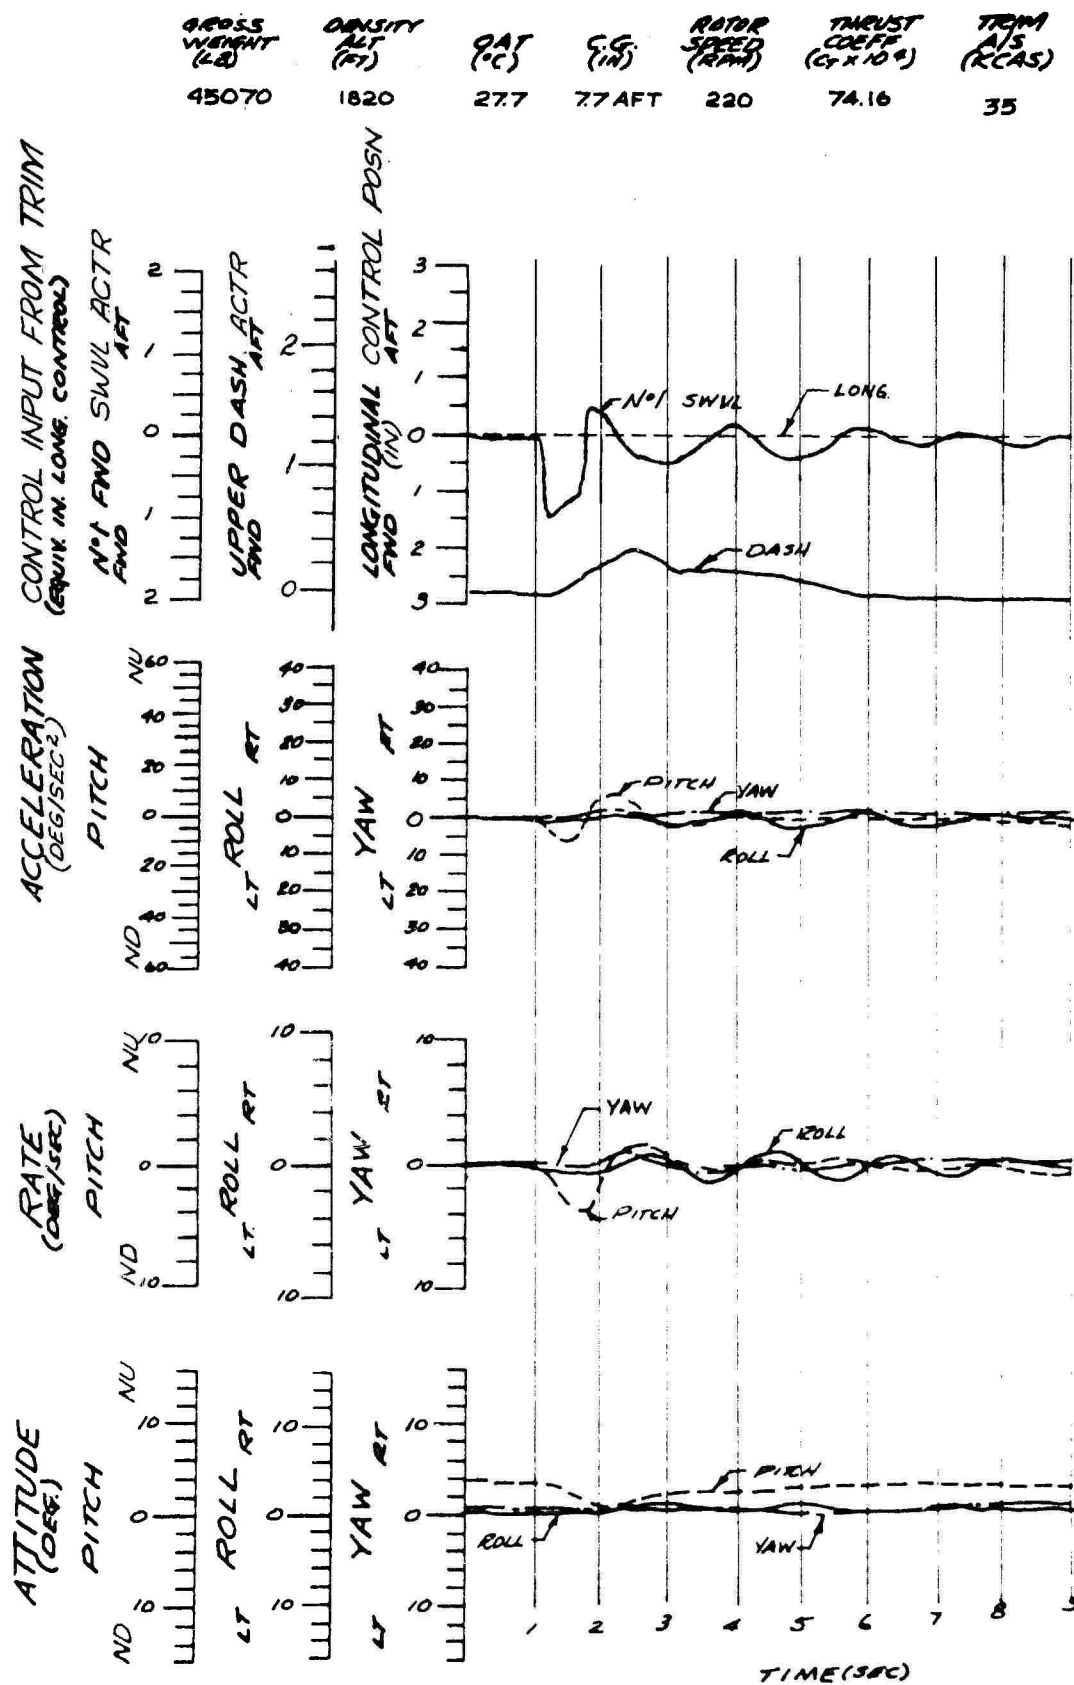 GROSS WEIGHT (LB)
DENSITY ALT (FT)
OAT (°C)
C.G. (IN)
ROTOR SPEED (RPM)
THRUST COEFF (CT X 10⁴)
TRIM A/S (KCAS)
45070 1820 27.7 7.7 AFT 220 74.16 35
CONTROL INPUT FROM TRIM
(EQUIV. IN. LONG. CONTROL)
Nº1 FWD SWVL ACTR
FWD AFT
2
1
0
1
2
UPPER DASH ACTR
FWD AFT
2
1
0
LONGITUDINAL CONTROL POSN
(IN)
FWD AFT
3
2
1
0
1
2
3
Nº1 SWVL
LONG.
DASH
ACCELERATION
(DEG/SEC²)
PITCH
ND NU
60
40
20
0
20
40
60
ROLL
LT RT
40
30
20
10
0
10
20
30
40
YAW
LT RT
40
30
20
10
0
10
20
30
40
PITCH
YAW
ROLL
RATE
(DEG/SEC)
PITCH
ND NU
10
0
10
ROLL
LT RT
10
0
10
YAW
LT RT
10
0
10
YAW
ROLL
PITCH
ATTITUDE
(DEG.)
PITCH
ND NU
10
0
10
ROLL
LT RT
10
0
10
YAW
LT RT
10
0
10
PITCH
ROLL
YAW
1 2 3 4 5 6 7 8 9
TIME (SEC)